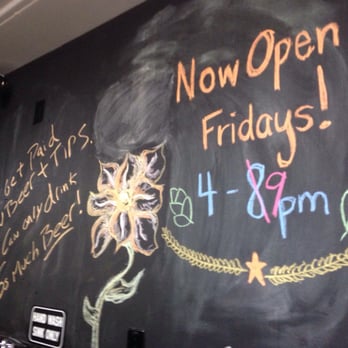 Get Paid
Beer + Tips.
can only drink
so Much Beer!
Now Open
Fridays!
4-9pm
HAND WASH
SINK ONLY